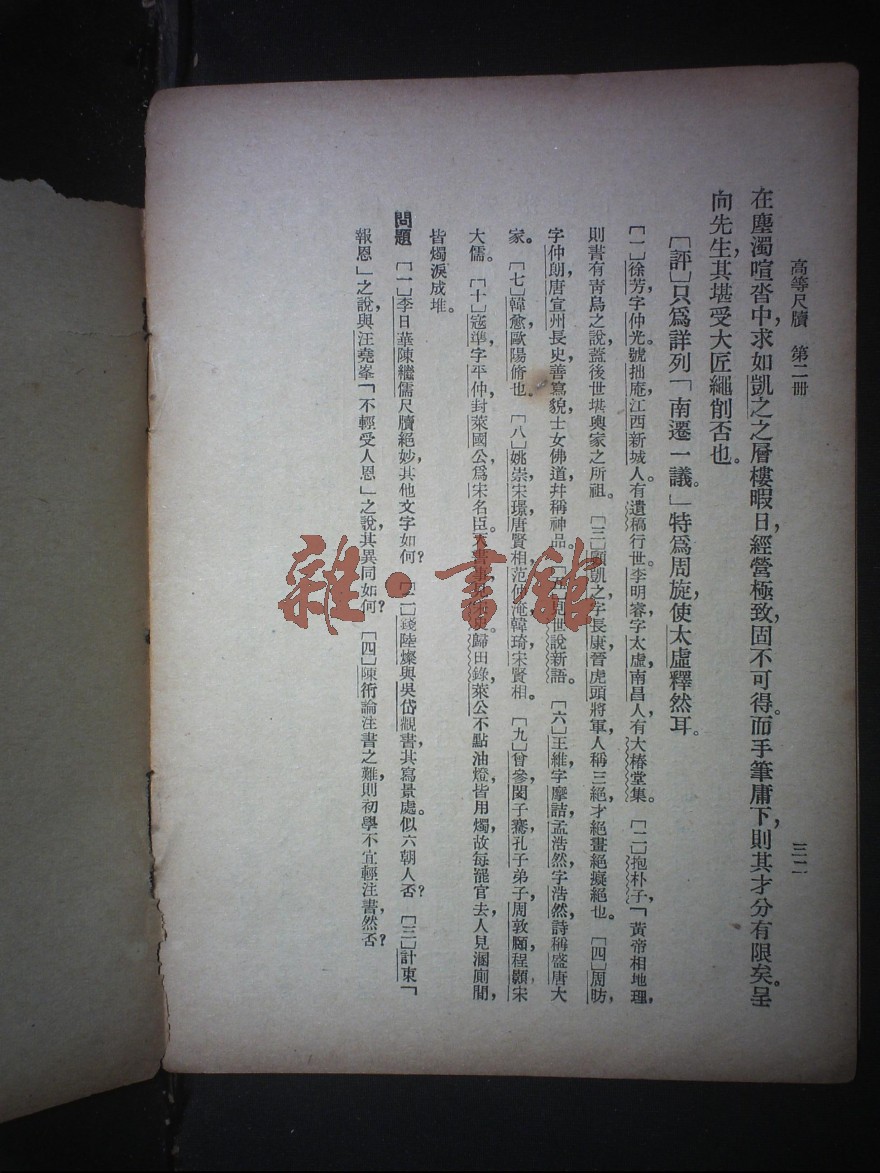 高等尺牘　第二冊
三二
在塵濁喧沓中，求如凱之之層樓暇日，經營極致，固不可得。而手筆庸下，則其才分有限矣。呈
向先生，其堪受大匠繩削否也。
［評］只爲詳列「南遷一議。」特爲周旋，使太虛釋然耳。
［一］徐芳字仲光。號拙庵，江西新城人。有遺稿行世。李明睿字太虛，南昌人，有大椿堂集。［二］抱朴子，「黃帝相地理，
則書有靑烏之說，蓋後世堪輿家之所祖。［三］顧凱之字長康，晉虎頭將軍，人稱三絕，才絕畫絕癡絕也。［四］周昉，
字仲朗，唐宣州長史，善寫貌，士女佛道，幷稱神品。［五］見世說新語。［六］王維字摩詰，孟浩然字浩然，詩稱盛唐大
家。［七］韓愈歐陽脩也。［八］姚崇宋璟，唐賢相，范仲淹韓琦，宋賢相。［九］曾參閔子騫，孔子弟子，周敦頤程顥，宋
大儒。［十］寇準字平仲，封萊國公，爲宋名臣。歸田錄，萊公不點油燈，皆用燭，故每罷官去，人見溷廁間，
皆燭淚成堆。
問題　［一］李日華陳繼儒尺牘絕妙，其他文字如何？［二］錢陸燦與吳岱觀書，其寫景處。似六朝人否？［三］計東「
報恩」之說，與汪堯峯「不輕受人恩」之說，其異同如何？［四］陳術論注書之難，則初學不宜輕注書，然否？
雜·書館